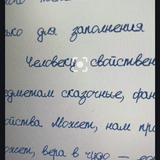 ько для заполнения
Человеку свойствен
редметам сказочные, фан
йства Может, нам пр
ожет, вера в чудо —